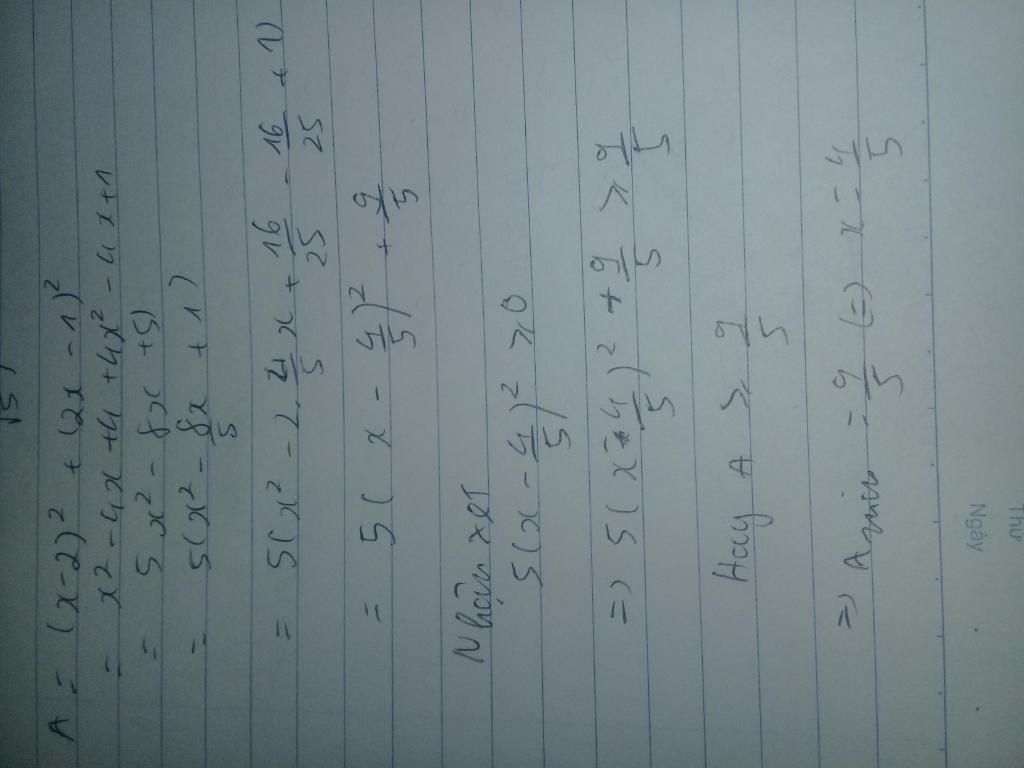 15)
A = (x-2)² + (2x-1)²
= x² - 4x + 4 + 4x² - 4x + 1
= 5x² - 8x + 5)
= 5(x² - 8x/5 + 1)
= 5(x² - 2.4/5 x + 16/25 - 16/25 + 1)
= 5(x - 4/5)² + 9/5
Nhận xét
5(x - 4/5)² ≥ 0
=> 5(x - 4/5)² + 9/5 ≥ 9/5
Hay A ≥ 9/5
=> Amin = 9/5 (=) x = 4/5
Thứ
Ngày